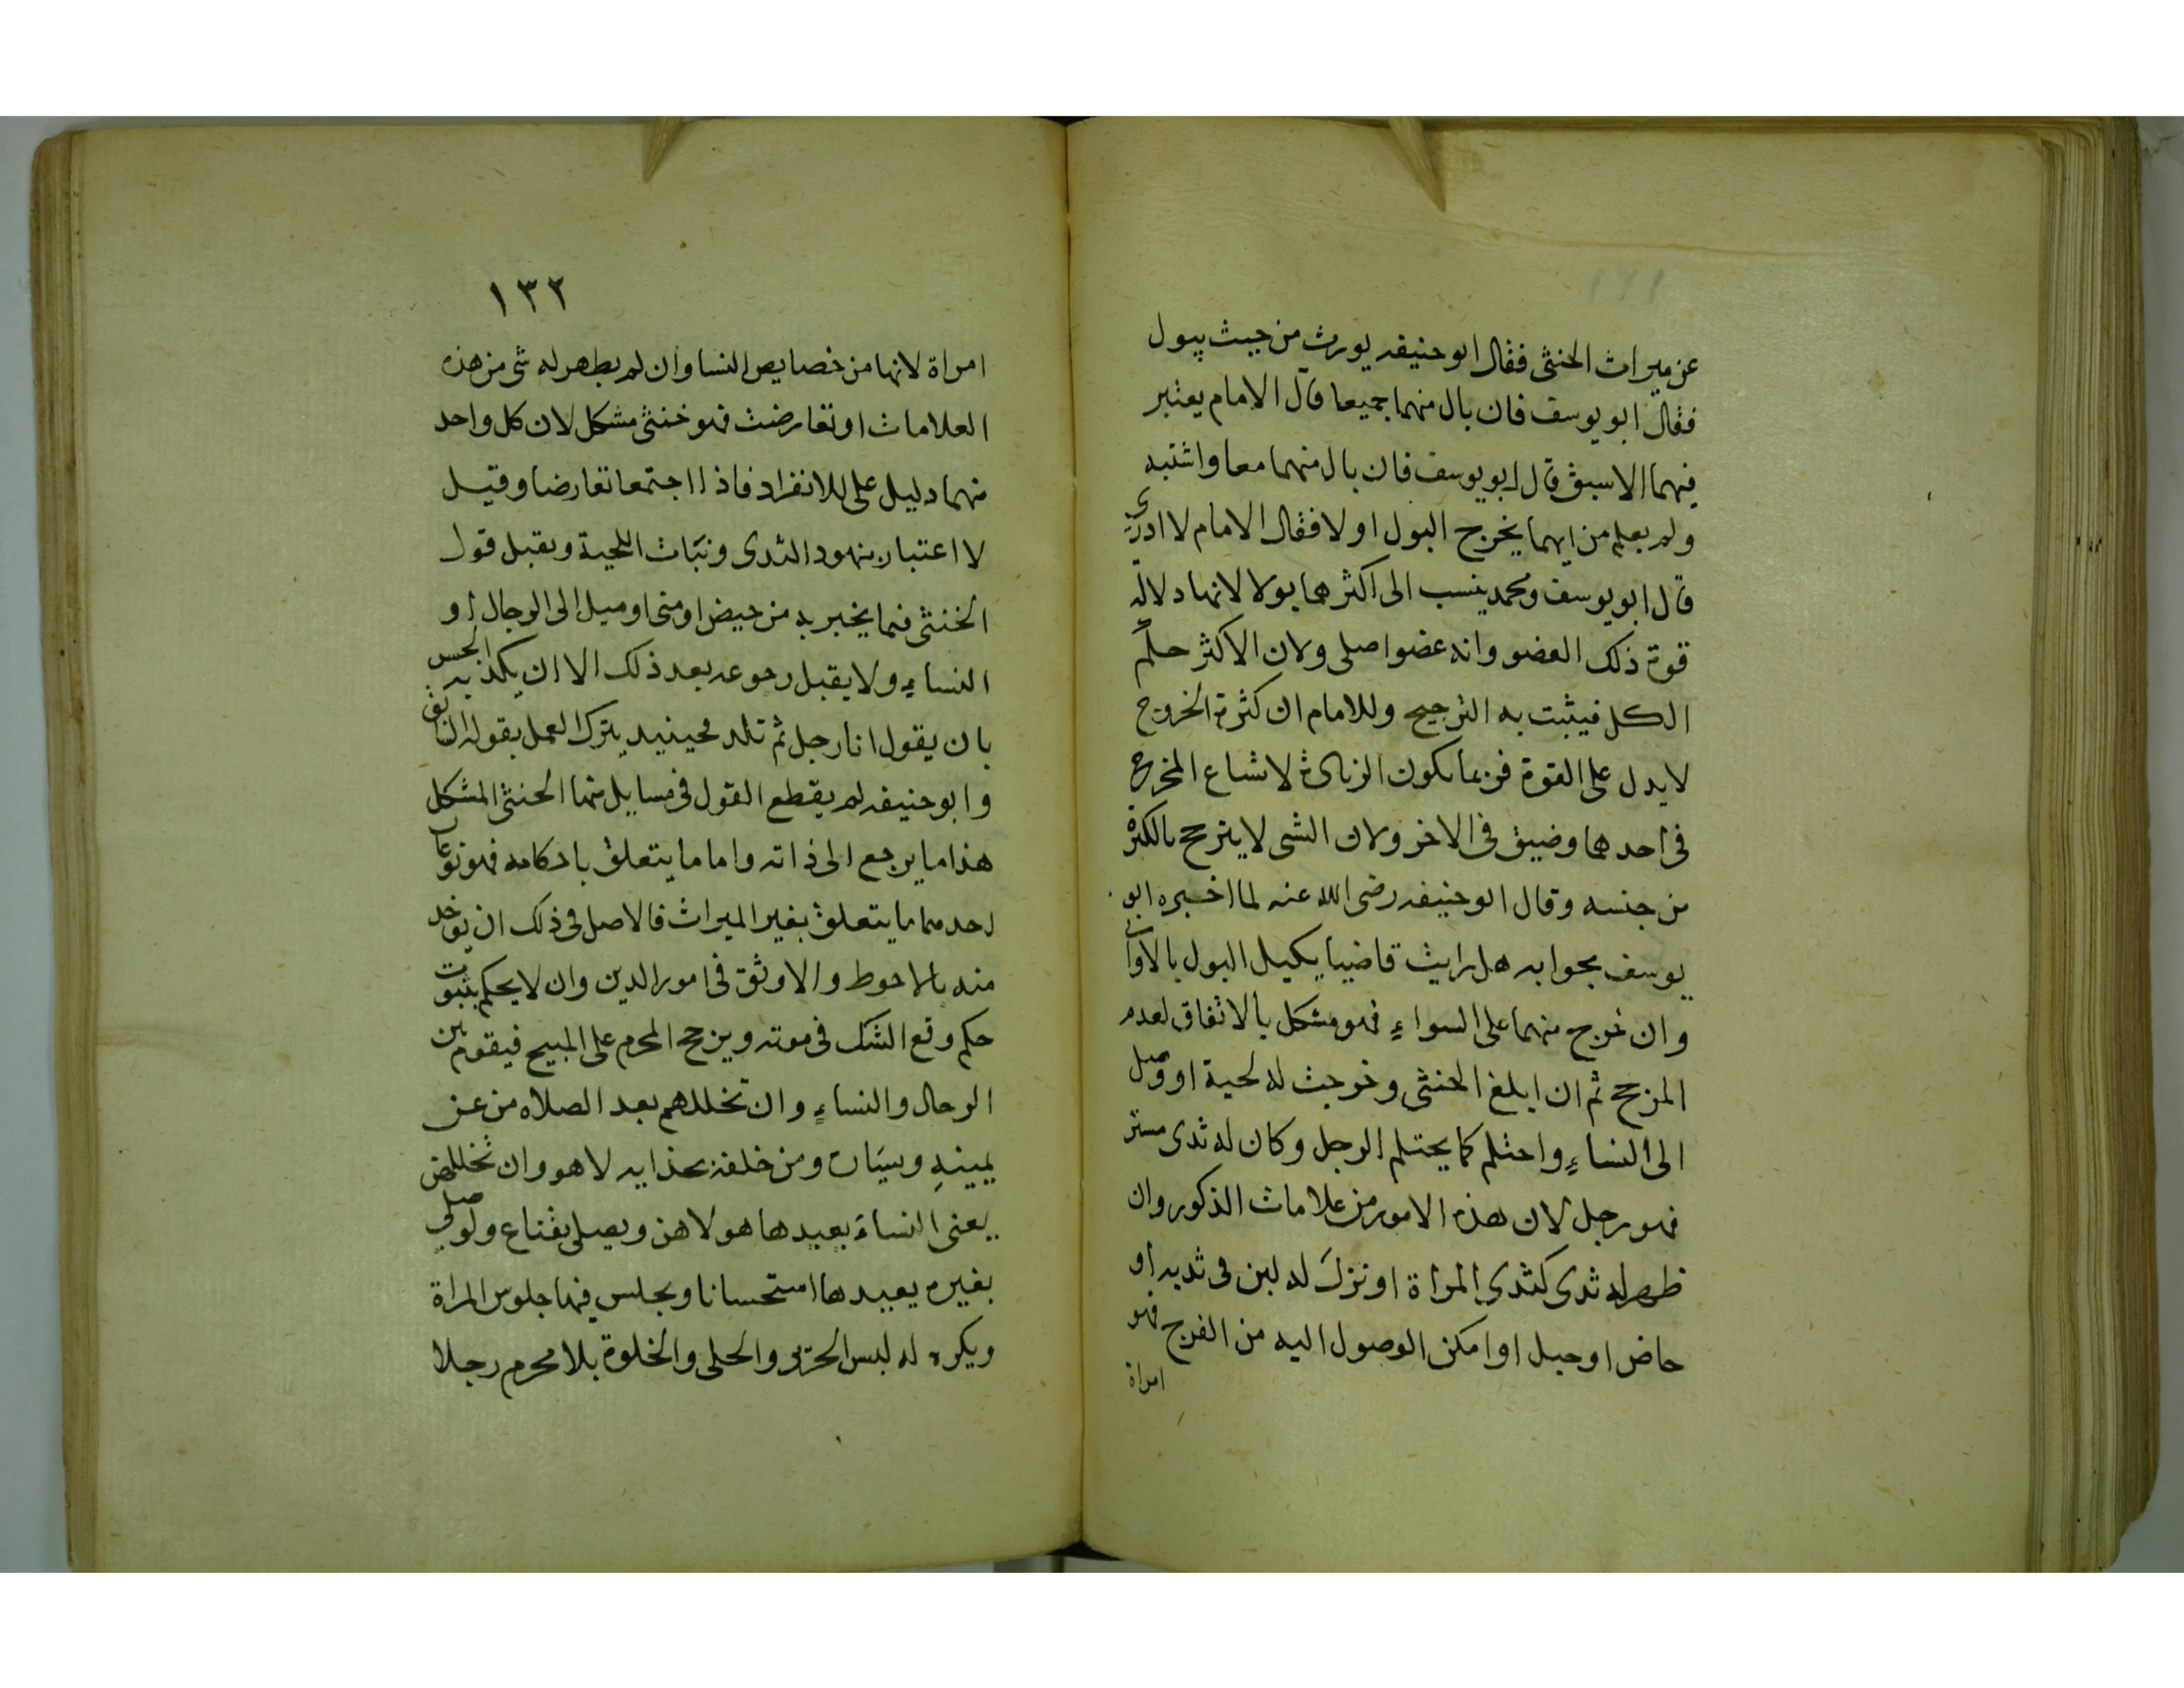 عن ميراث الخنثى فقال ابو حنيفه يورث من حيث يبول
فقال ابو يوسف فان بال منهما جميعا قال الامام يعتبر
فيهما الاسبق قال ابو يوسف فان بال منهما معا واشتبه
ولم يعلم من ايهما يخرج البول اولا فقال الامام لا ادرى
قال ابو يوسف ومحمد ينسب الى اكثرهما بولا لانها دلالة
قوة ذلك العضو وانه عضو اصلى ولان الاكثر حكم
الكل فيثبت به الترجيح وللامام ان كثرة الخروج
لا يدل على القوة فربما يكون الزيادة لاتساع المخرج
فى احدهما وضيق فى الاخر ولان الشى لا يترجح بالكثرة
من جنسه وقال ابو حنيفه رضى الله عنه لما اخبره ابو
يوسف بجوابه هل رايت قاضيا يكيل البول بالاوانى
وان خرج منهما على السواء فهو مشكل بالاتفاق لعدم
المرجح ثم ان ابلغ الخنثى وخرجت له لحية او وصل
الى النساء واحتلم كما يحتلم الرجل وكان له ثدى مستو
فهو رجل لان هذه الامور من علامات الذكور وان
ظهر له ثدى كثدى المراة او نزل له لبن فى ثديه او
حاض او حبل او امكن الوصول اليه من الفرج فهو
امراة
١٣٢
امراة لانها من خصايص النسا وان لم يظهر له شى من هذه
العلامات او تعارضت فهو خنثى مشكل لان كل واحد
منهما دليل على الانفراد فاذا اجتمعا تعارضا وقيل
لا اعتبار بنهود الثدى ونبات اللحية ويقبل قول
الخنثى فيما يخبر به من حيض او منى او ميل الى الرجال او
النساء ولا يقبل رجوعه بعد ذلك الا ان يكذبه الحس
بان يقول انا رجل ثم تلد فحينيد يترك العمل بقوله السابق
وابو حنيفه لم يقطع القول فى مسايل منها الخنثى المشكل
هذا ما يرجع الى ذاته واما ما يتعلق باحكامه فهو نوعان
احدهما ما يتعلق بغير الميراث فالاصل فى ذلك ان يوخد
منه بالاحوط والاوثق فى امور الدين وان لا يحكم بثبوت
حكم وقع الشك فى موته ويرجح المحرم على المبيح فيقوم بين
الرجال والنساء وان تخللهم بعد الصلاه من عن
يمينه ويساره ومن خلفه بحذايه لا هو وان تخللهن
يعنى النساء يعيدها هو لا هن ويصلى بقناع ولو صلى
بغيره يعيدها استحسانا ويجلس فيها جلوس المراة
ويكره له لبس الحرير والحلى والخلوة بلا محرم رجلا